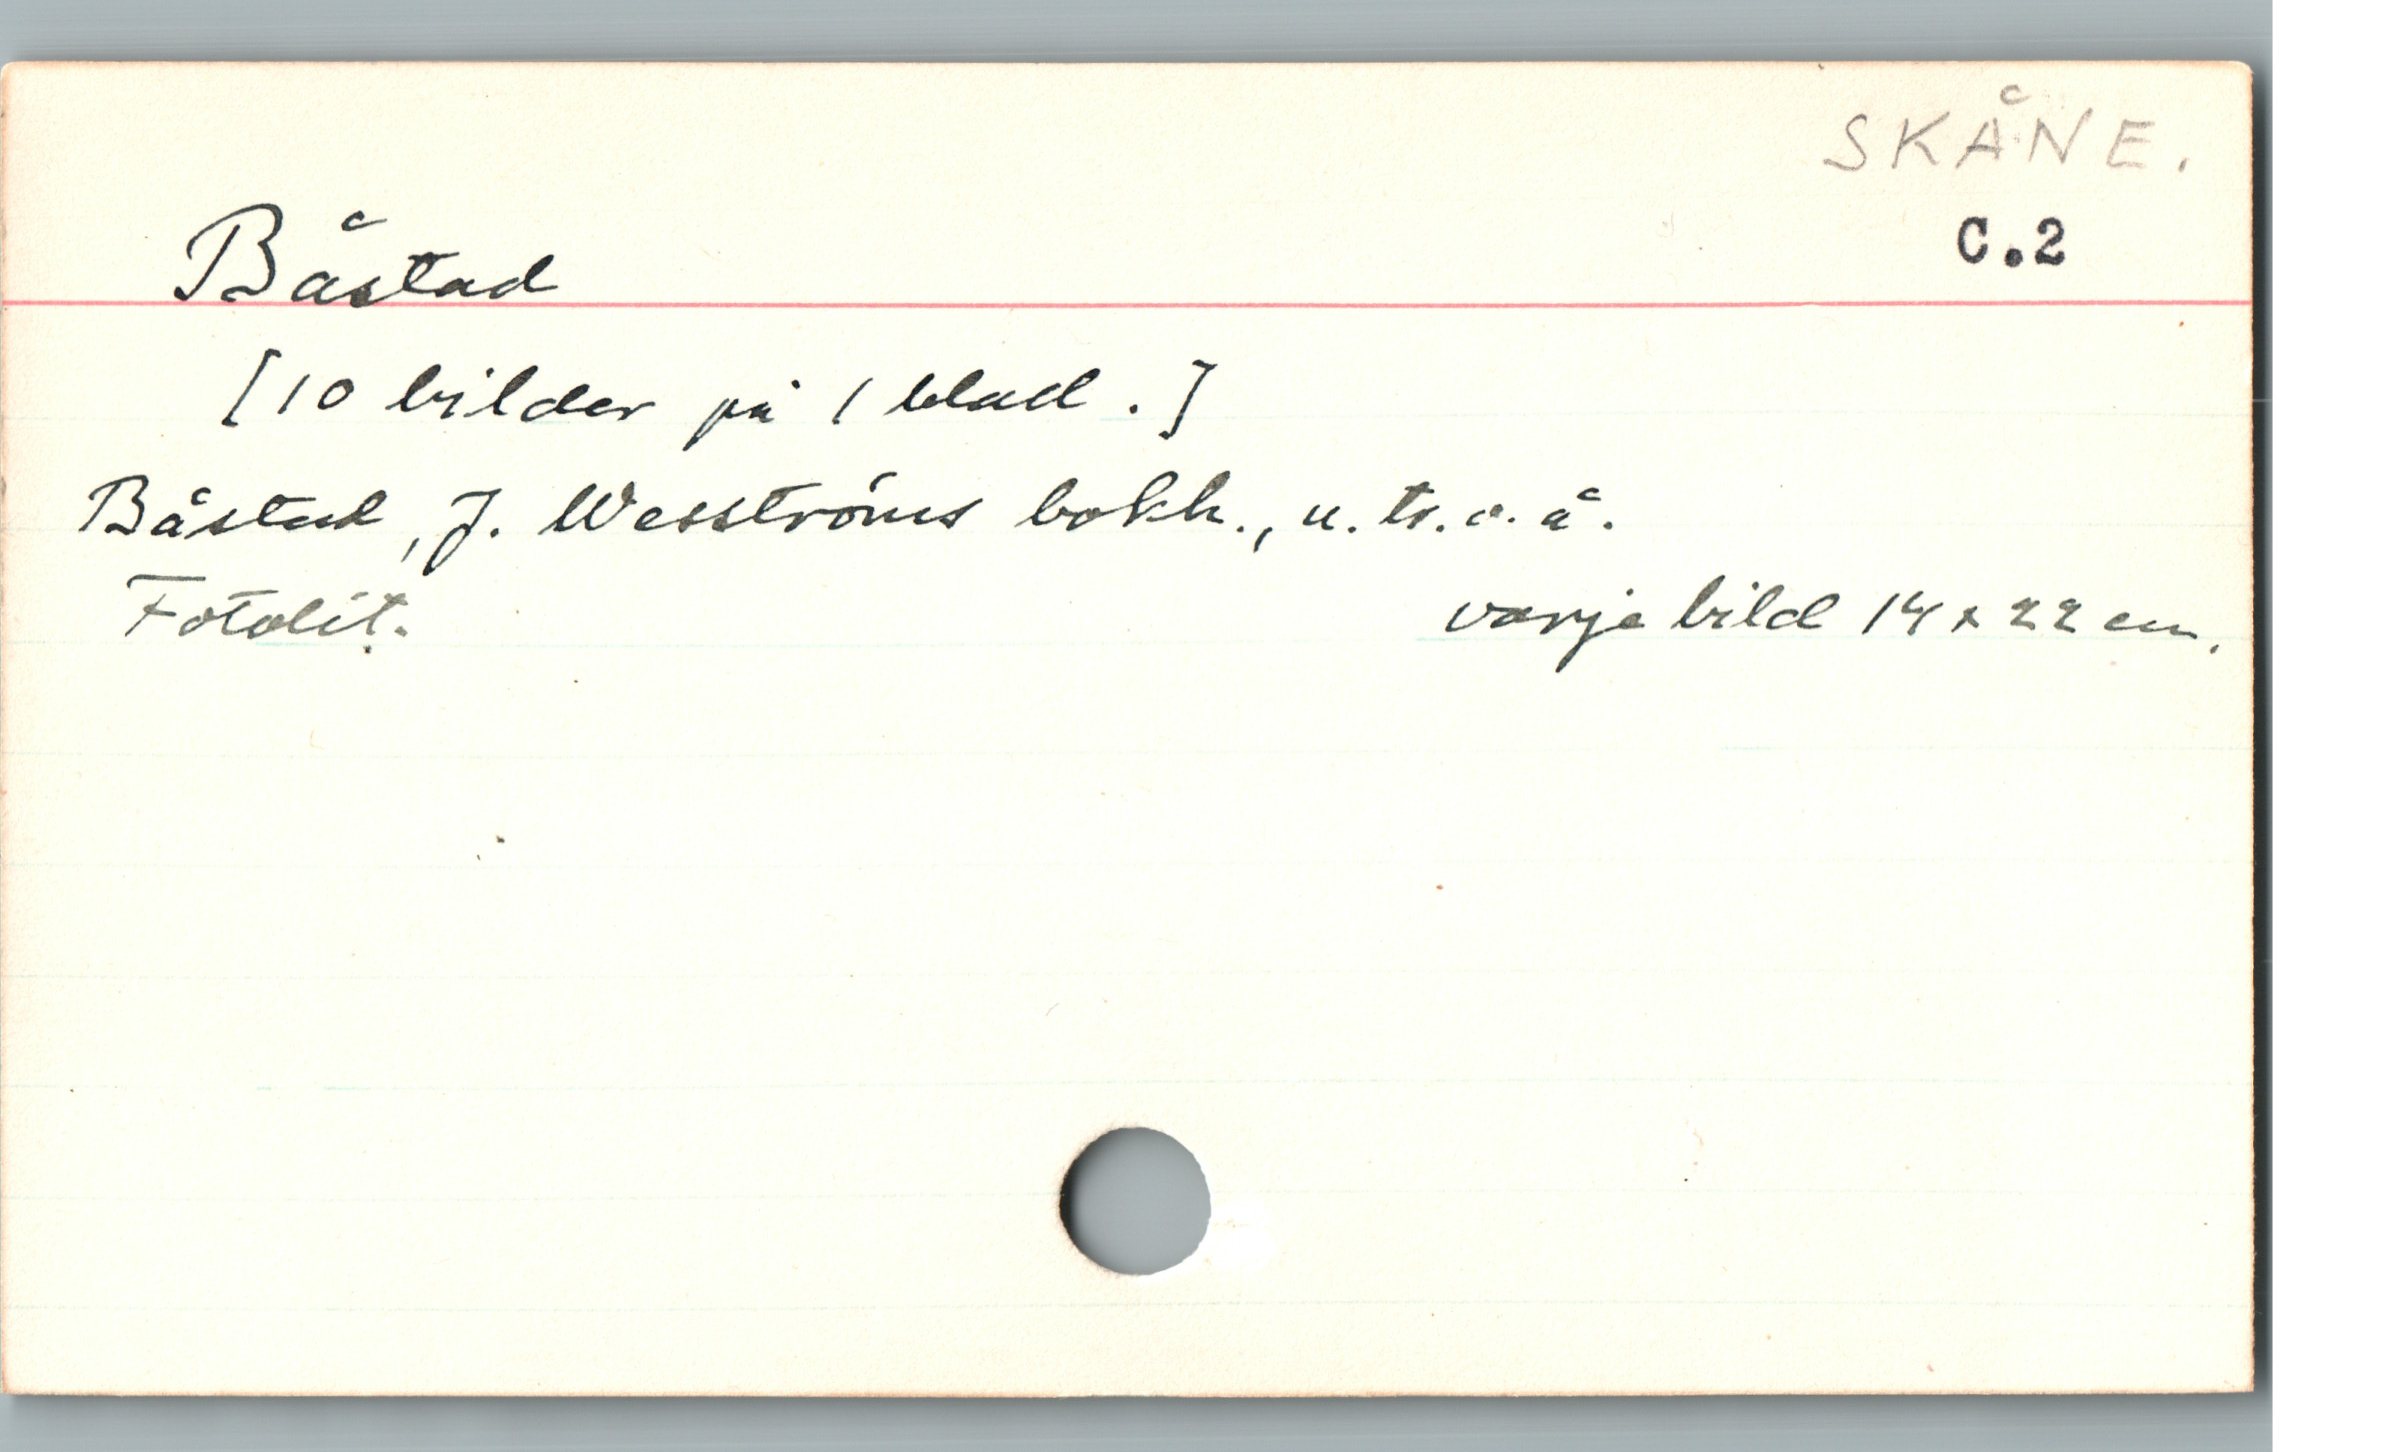 SKÅNE.
C.2
Båstad
[10 bilder på 1 blad.]
Båstad, J. Wesströms bokh., u. tr. o. å.
Fotolit. varje bild 14 x 22 cm.